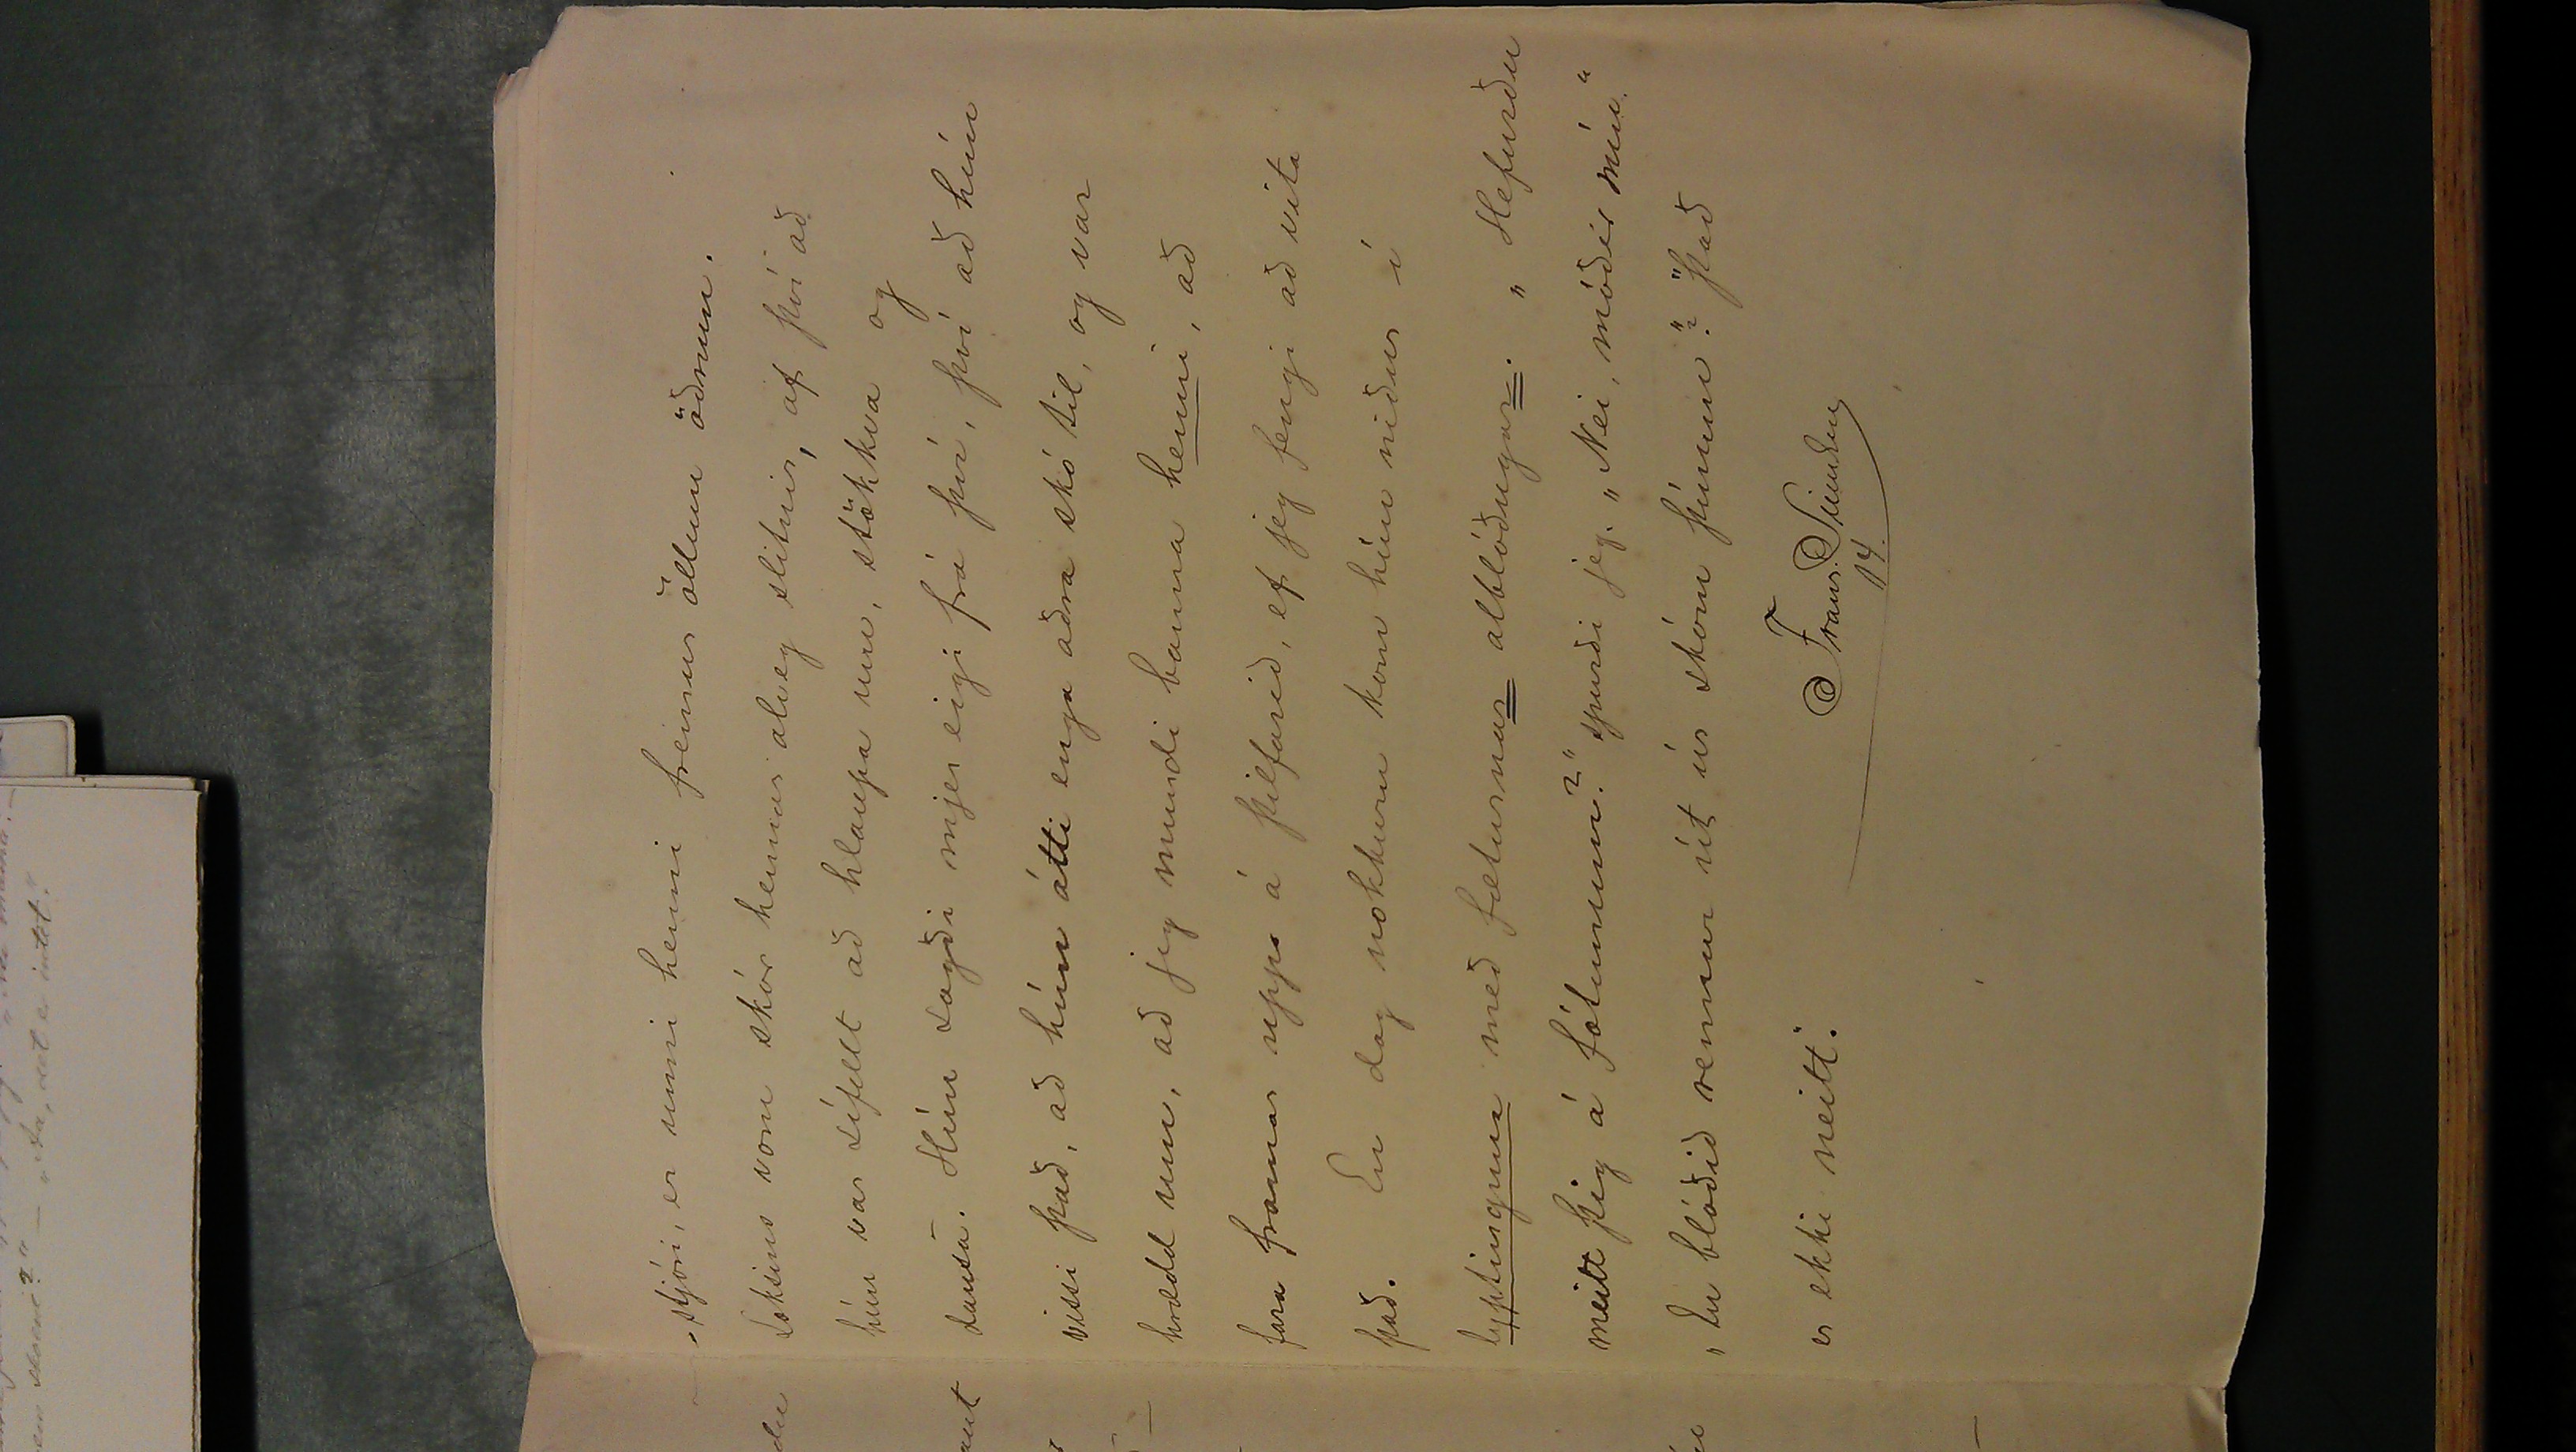 -stjóri, er unni henni freimur öllum öðrum.
Loksins voru skór hennar alveg slitnir, af því að
hún var sífelt að hlaupa um, stökkva og
dansa. Hún sagði mjer eigi frá því, því að hún
vissi það, að hún átti enga aðra skó til, og var
hrædd um, að jeg mundi banna henni, að
fara framar upp á þilfarið, ef jeg fengi að vita
það. En dag nokkurn kom hún niður í
lyptinguna með fæturnar alblóðugar. „Hefurðu
meitt þig á fótunum?" spurði jeg. „Nei, móðir mín."
„En blóðið rennur út úr skóm þínum?" "Það
er ekki neitt".
Frans.
14.
du
aut
"Ja, det e intet".